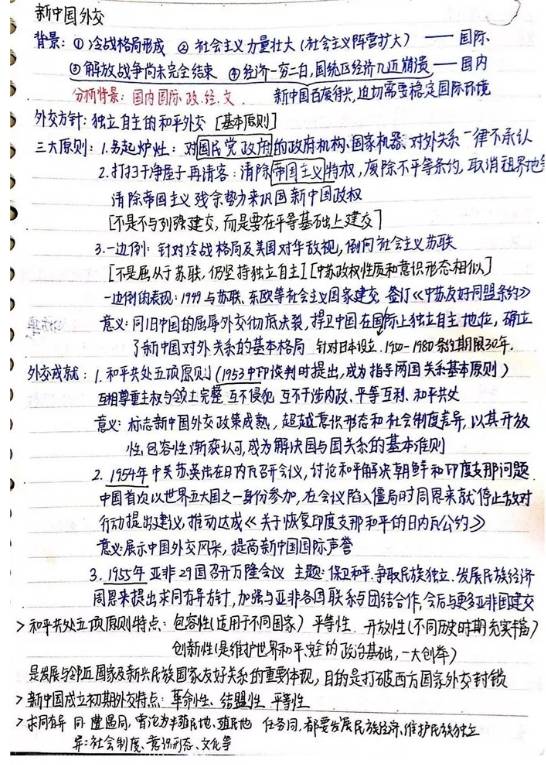 新中国外交
背景：① 冷战格局形成 ② 社会主义力量壮大（社会主义阵营扩大）—— 国际
③ 解放战争尚未完全结束 ④ 经济一穷二白，国统区经济几近崩溃 —— 国内
分析背景：国内国际、政、经、文 新中国百废待兴，迫切需要稳定国际环境
外交方针：独立自主的和平外交 [基本原则]
三大原则：1.另起炉灶：对国民党政府的政府机构、国家机器、对外关系一律不承认
2.打扫干净屋子再请客：清除帝国主义特权，废除不平等条约，取消租界地等
清除帝国主义残余势力来巩固新中国政权
[不是不与列强建交，而是要在平等基础上建交]
3.一边倒：针对冷战格局及美国对华敌视，倒向社会主义苏联
[不是屈从于苏联，仍坚持独立自主] [中苏政权性质和意识形态相似]
一边倒的表现：1949与苏联、东欧等社会主义国家建交 签订《中苏友好同盟条约》
意义：同旧中国的屈辱外交彻底决裂，捍卫中国在国际上独立自主地位，确立
了新中国对外关系的基本格局 针对日本设立 1950-1980条约期限30年.
外交成就：1.和平共处五项原则（1953中印谈判时提出，成为指导两国关系基本原则）
互相尊重主权与领土完整 互不侵犯 互不干涉内政、平等互利、和平共处
意义：标志新中国外交政策成熟，超越意识形态和社会制度差异，以其开放
性、包容性渐获认可，成为解决国与国关系的基本准则
2. 1954年中美苏英法在日内瓦召开会议，讨论和平解决朝鲜和印度支那问题.
中国首次以世界五大国之一身份参加，在会议陷入僵局时周恩来就停止敌对
行动提出建议，推动达成《关于恢复印度支那和平的日内瓦公约》
意义：展示中国外交风采，提高新中国国际声誉
3. 1955年亚非29国召开万隆会议 主题：保卫和平、争取民族独立、发展民族经济
周恩来提出求同存异方针，加强与亚非各国联系与团结合作，会后与更多亚非国建交
> 和平共处五项原则特点：包容性（适用于不同国家）平等性 开放性（不同历史时期充实丰富）
创新性（是维护世界和平、安全的政治基础，一大创举）
是发展与邻近国家及新兴民族国家友好关系的重要体现，目的是打破西方国家外交封锁
> 新中国成立初期外交特点：革命性、结盟性、平等性
> 求同存异 同：遭遇同，常沦为半殖民地、殖民地 任务同，都要发展民族经济、维护民族独立
异：社会制度、意识形态、文化等